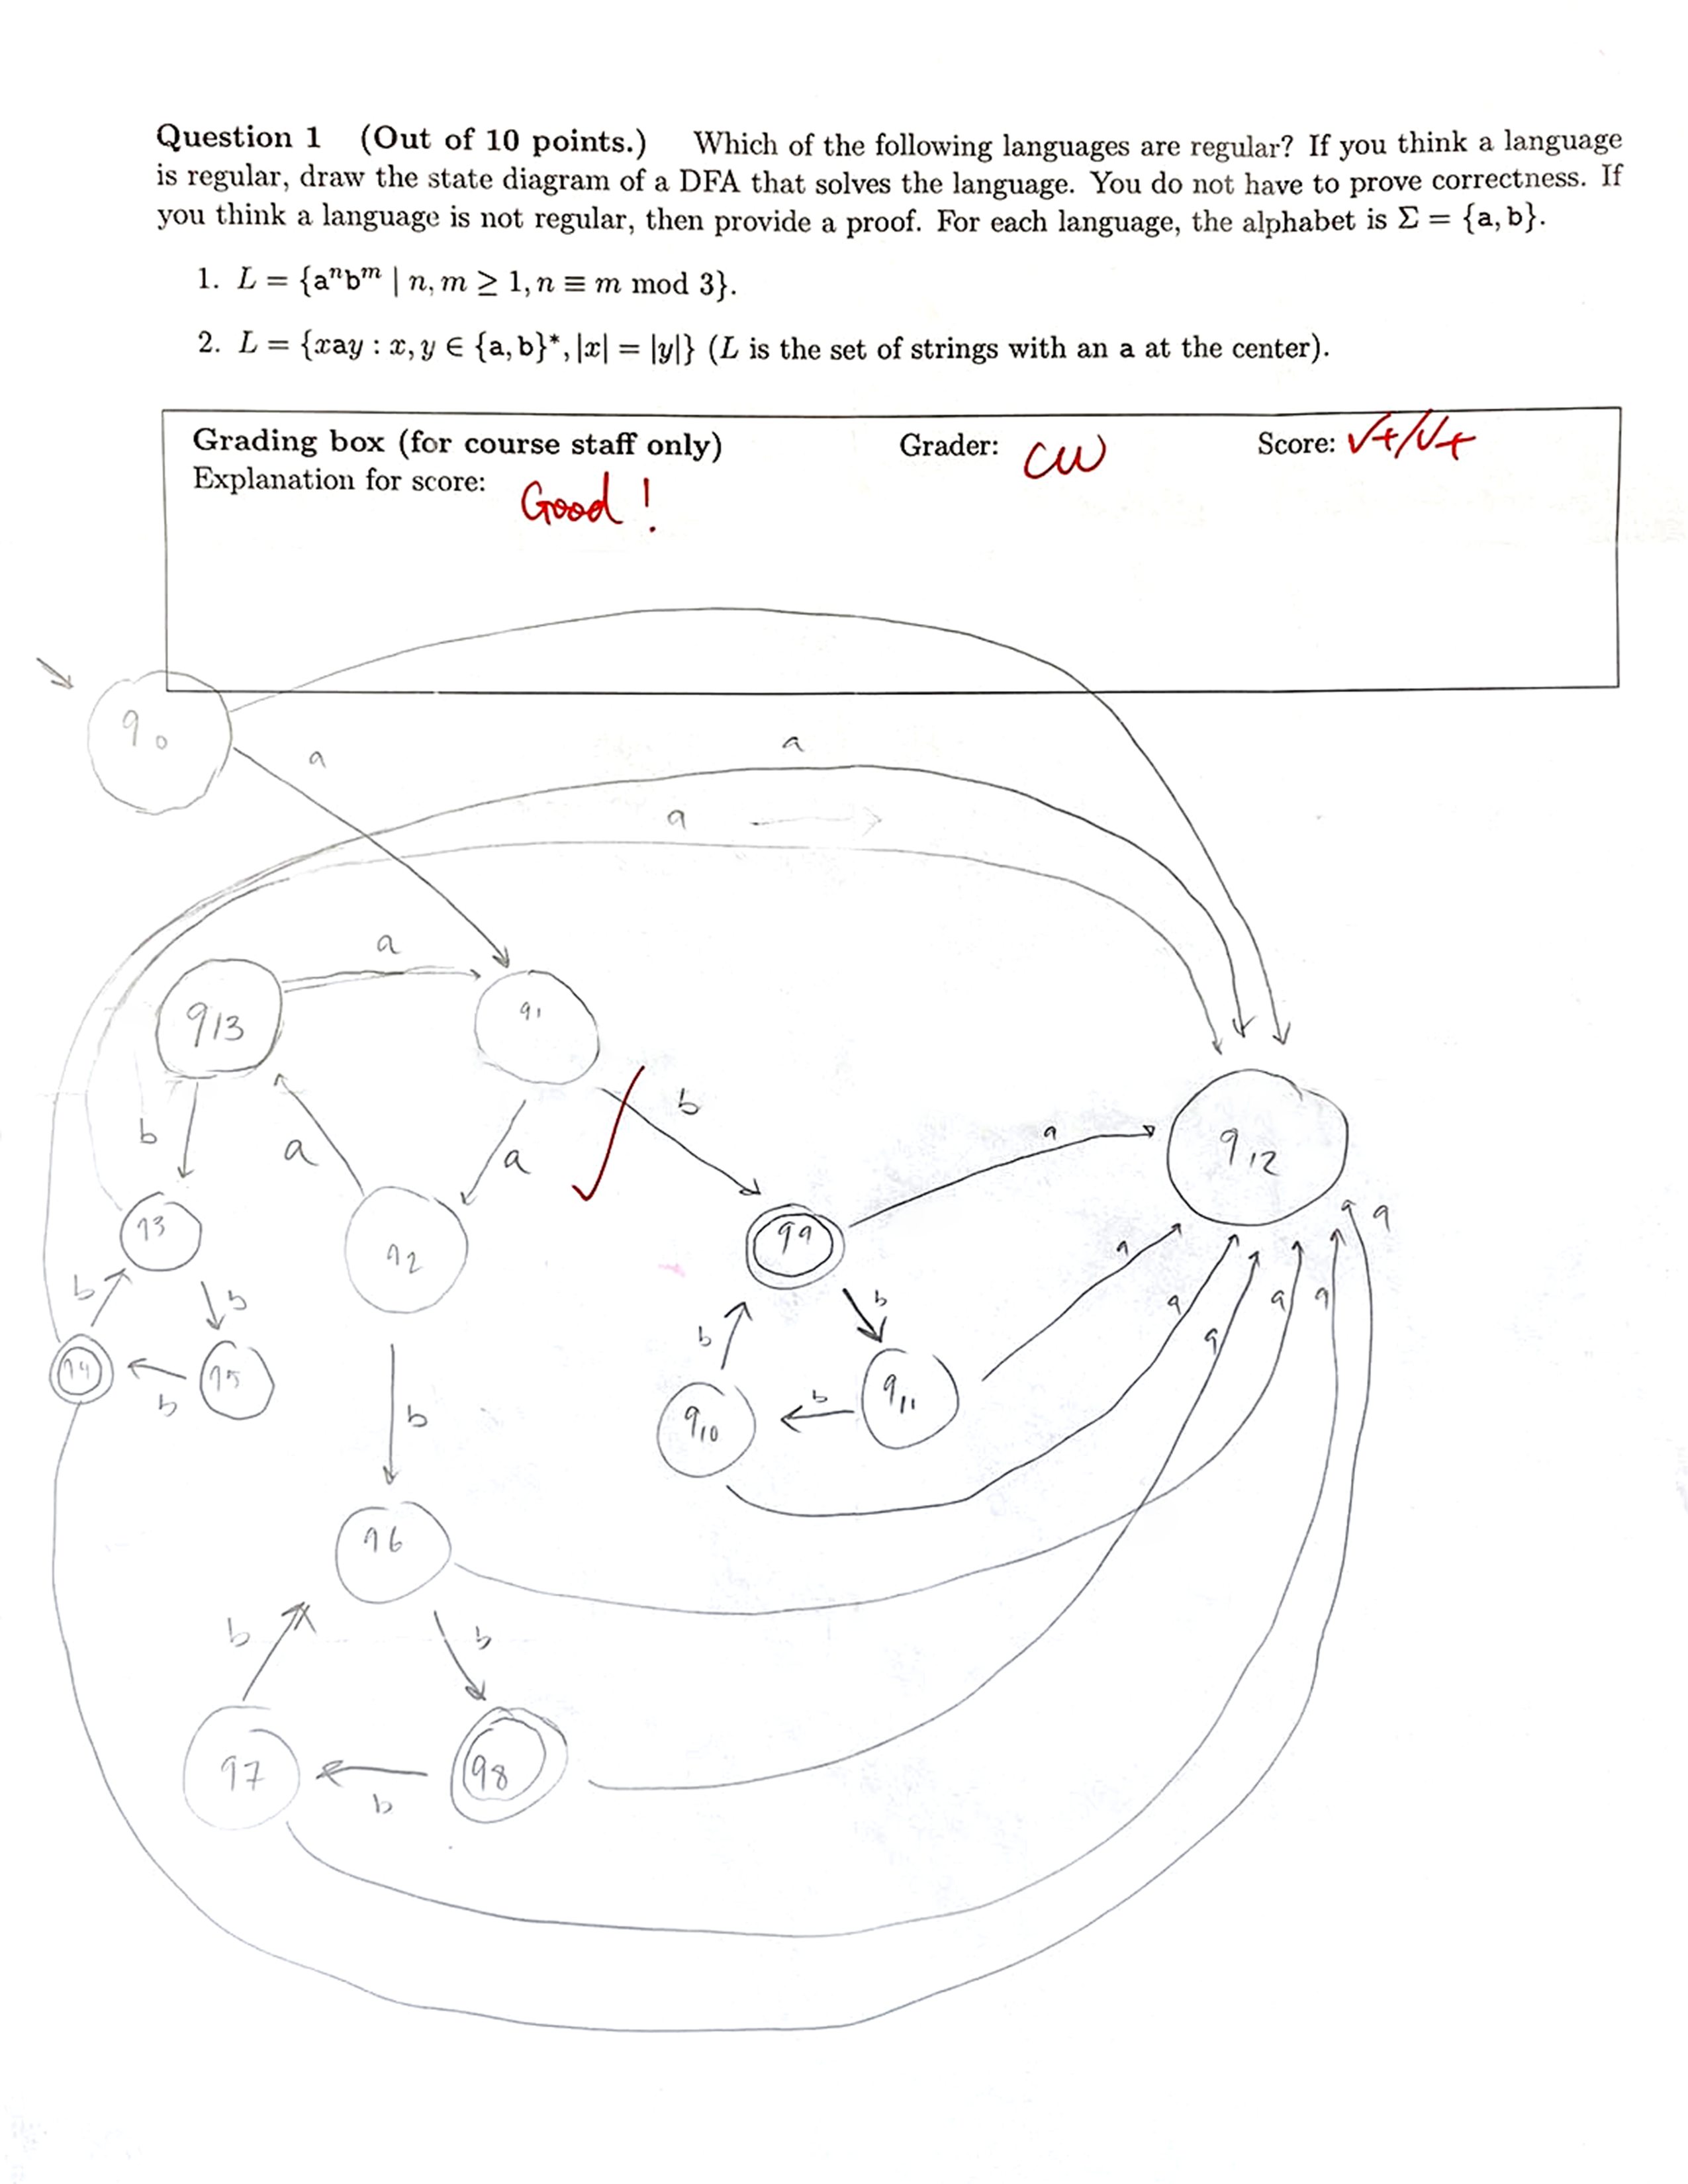 Question 1 (Out of 10 points.) Which of the following languages are regular? If you think a language
is regular, draw the state diagram of a DFA that solves the language. You do not have to prove correctness. If
you think a language is not regular, then provide a proof. For each language, the alphabet is Σ = {a, b}.
1. L = {aⁿbᵐ | n, m ≥ 1, n ≡ m mod 3}.
2. L = {xay : x, y ∈ {a, b}*, |x| = |y|} (L is the set of strings with an a at the center).
Grading box (for course staff only) Grader: CW Score: √+/√+
Explanation for score: Good!
q0
a
a
a
a
q13
q1
b
b
a
a
a
q12
q3
q2
q9
a
a
b
b
b
b
a
a
a
a
q4
q5
b
b
b
q10
q11
q6
b
b
q7
q8
b